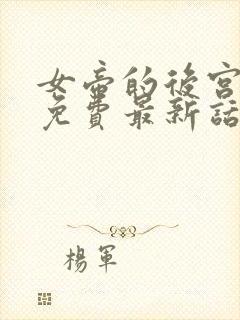 女帝的後宮
免費最新話
楊軍